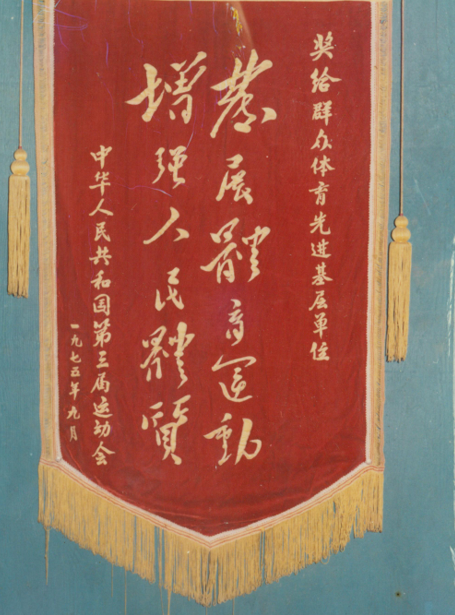 奖给群众体育先进基层单位
發展體育运動
增强人民體質
中华人民共和国第三届运动会
一九七五年九月